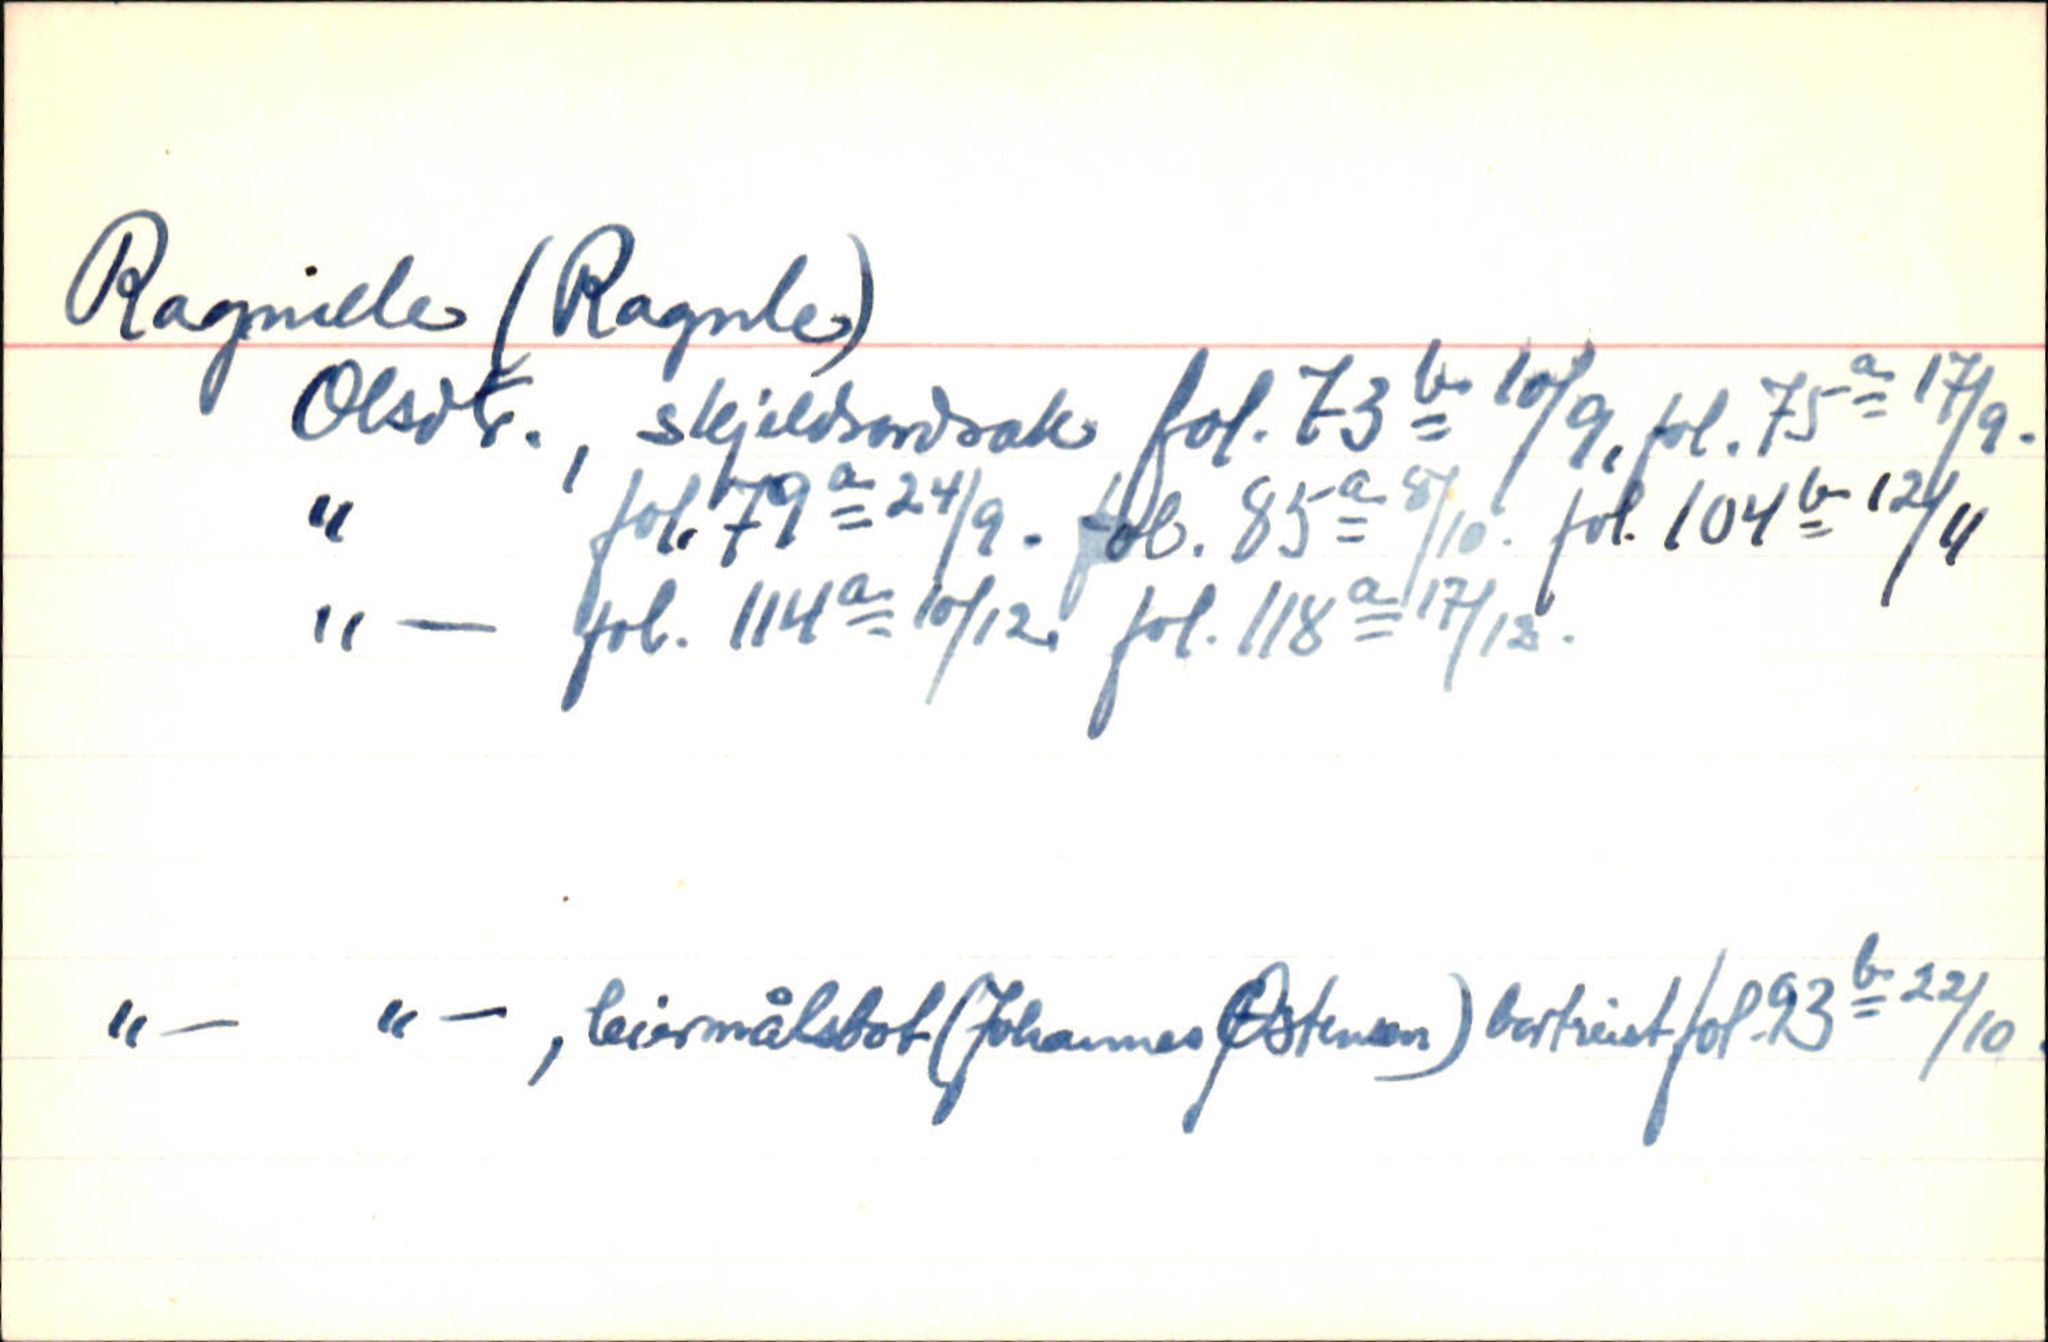 Ragnille (Ragnle)
Olsdtr., skjeldsordsak fol. 73 b 10/9, fol. 75 a 17/9.
" fol. 79 a 24/9. fol. 85 a 8/10. fol. 104 b 12/11
" — fol. 114 a 10/12. fol. 118 a 17/12.
" — " — , leiermålsbot (Johannes Østensen) bortreist fol. 93 b 22/10.